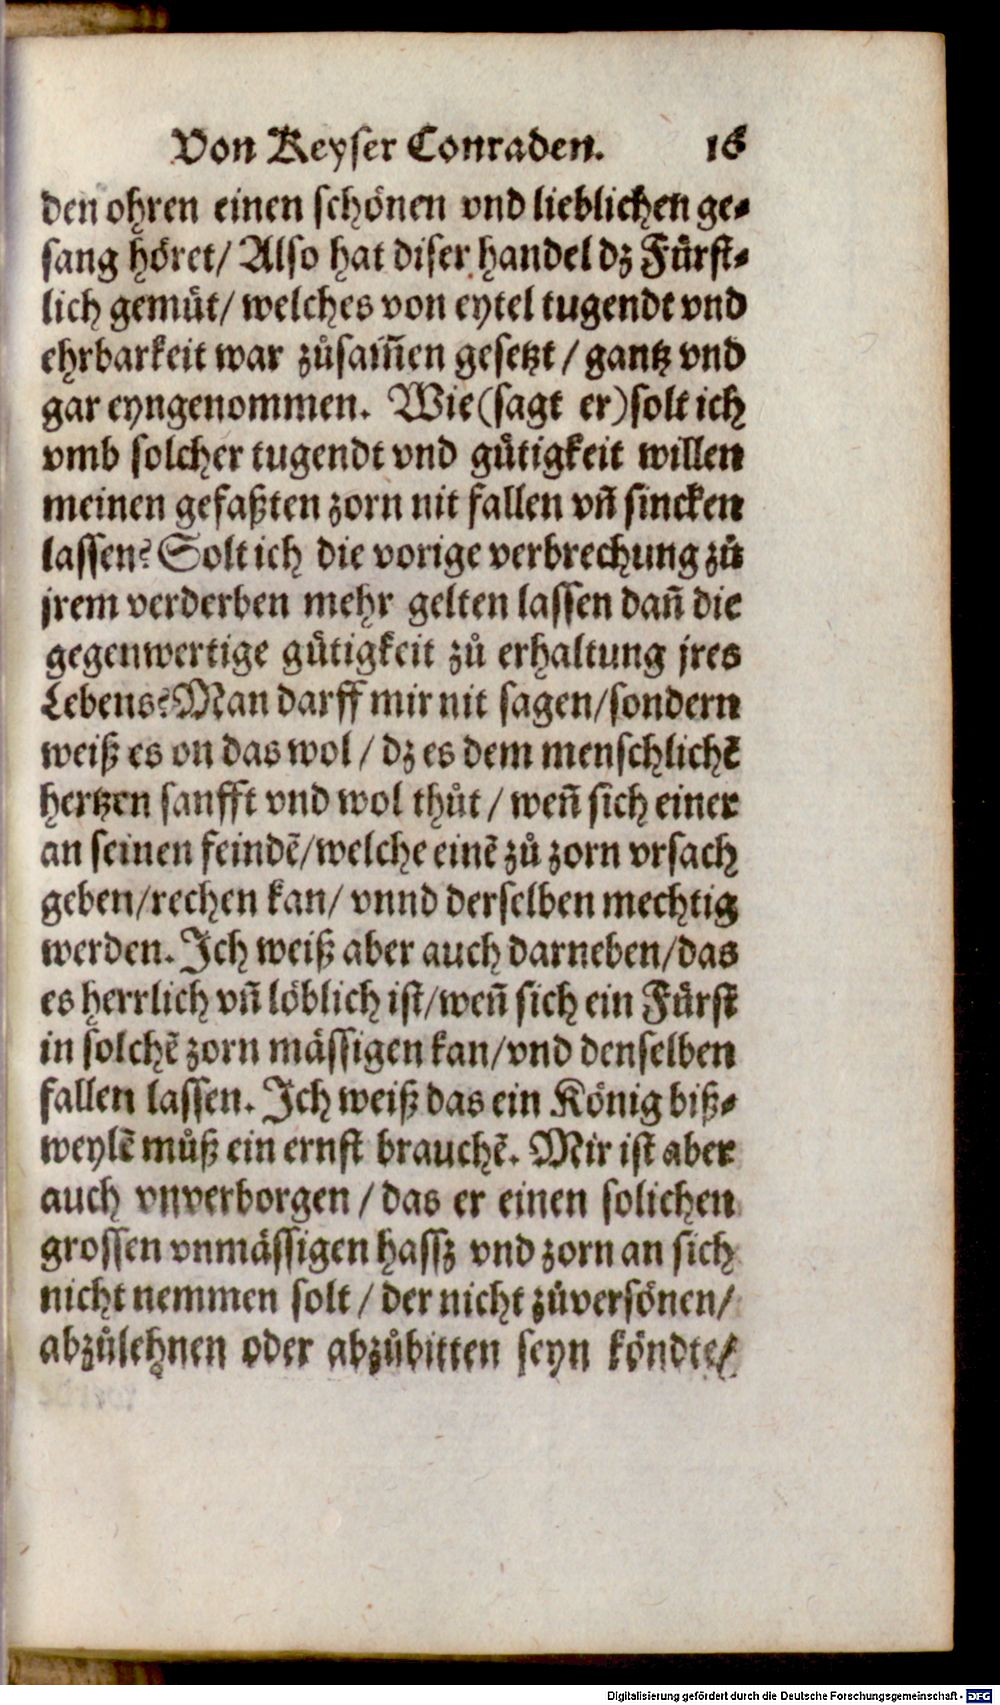 Von Keyser Conraden. 16
den ohren einen schönen vnd lieblichen ge-
sang höret/ Also hat diser handel dz Fürst-
lich gemüt/ welches von eytel tugendt vnd
ehrbarkeit war zůsam̃en gesetzt / gantz vnd
gar eyngenommen. Wie (sagt er) solt ich
vmb solcher tugendt vnd gütigkeit willen
meinen gefaßten zorn nit fallen vñ sincken
lassen? Solt ich die vorige verbrechung zů
jrem verderben mehr gelten lassen dañ die
gegenwertige gütigkeit zů erhaltung jres
Lebens? Man darff mir nit sagen/ sondern
weiß es on das wol / dz es dem menschlichẽ
hertzen sanfft vnd wol thůt / weñ sich einer
an seinen feindẽ/ welche einẽ zů zorn vrsach
geben/ rechen kan/ vnnd derselben mechtig
werden. Ich weiß aber auch darneben/ das
es herrlich vñ löblich ist/ weñ sich ein Fürst
in solchẽ zorn mässigen kan/ vnd denselben
fallen lassen. Ich weiß das ein König biß-
weylẽ můß ein ernst brauchẽ. Mir ist aber
auch vnverborgen / das er einen solichen
grossen vnmässigen hassz vnd zorn an sich
nicht nemmen solt / der nicht zůversönen/
abzůlehnen oder abzůbitten seyn köndte/
Digitalisierung gefördert durch die Deutsche Forschungsgemeinschaft - DFG